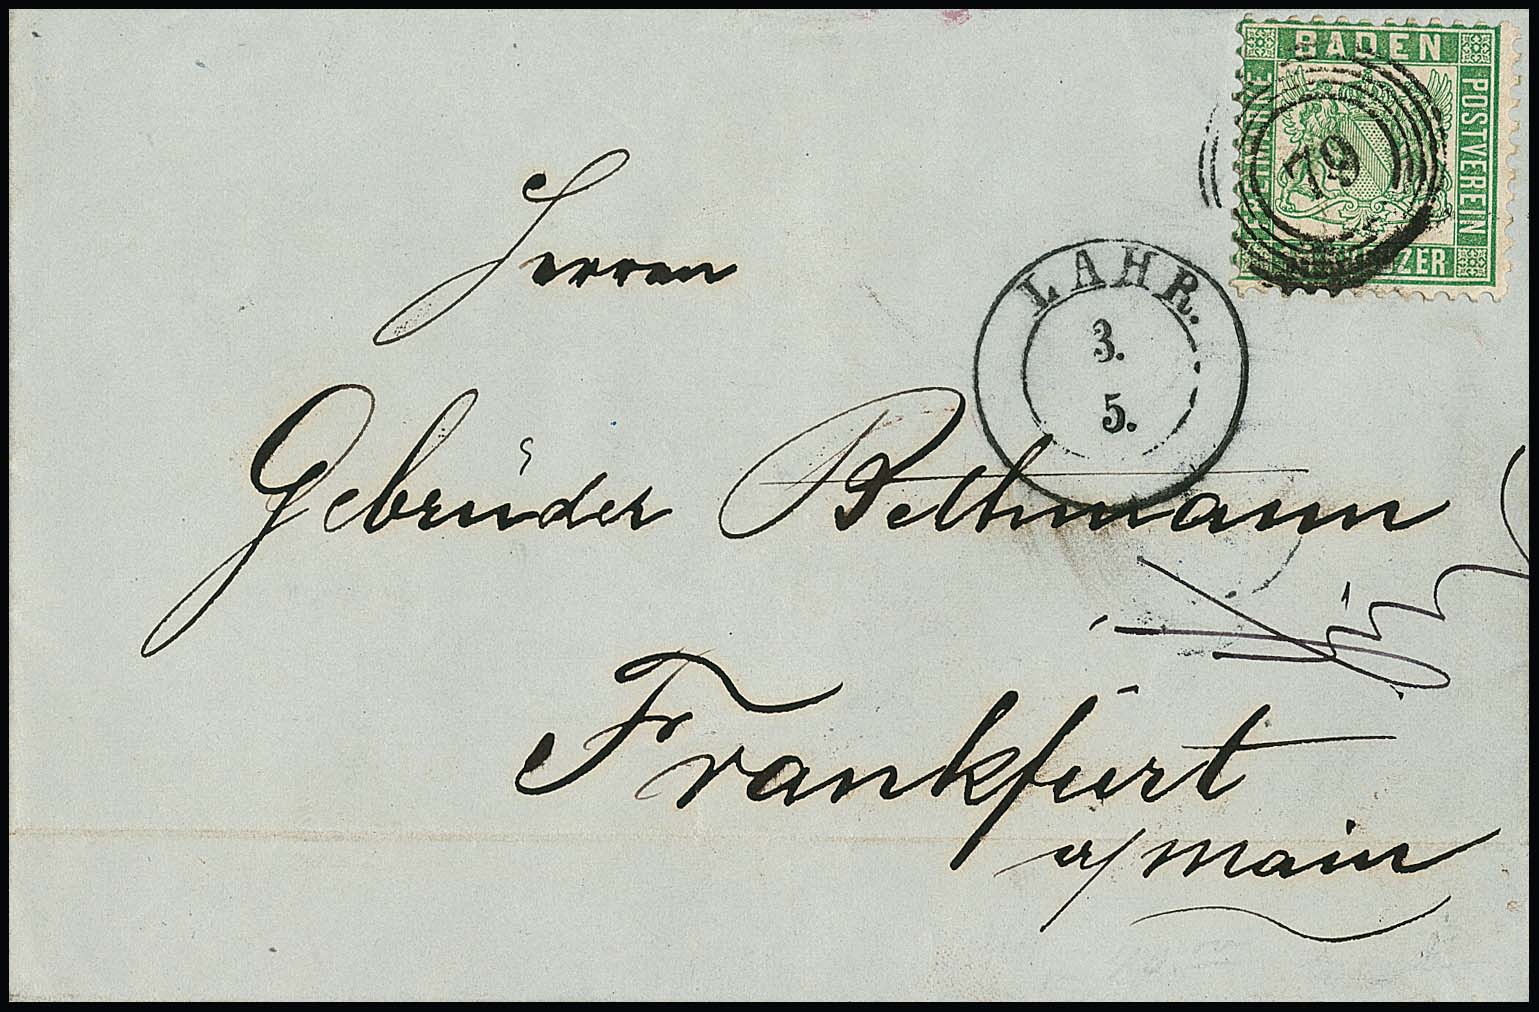 BADEN
POSTVEREIN
79
LAHR.
3.
5.
Herren
Gebrüder Bethmann
Frankfurt
a/Main